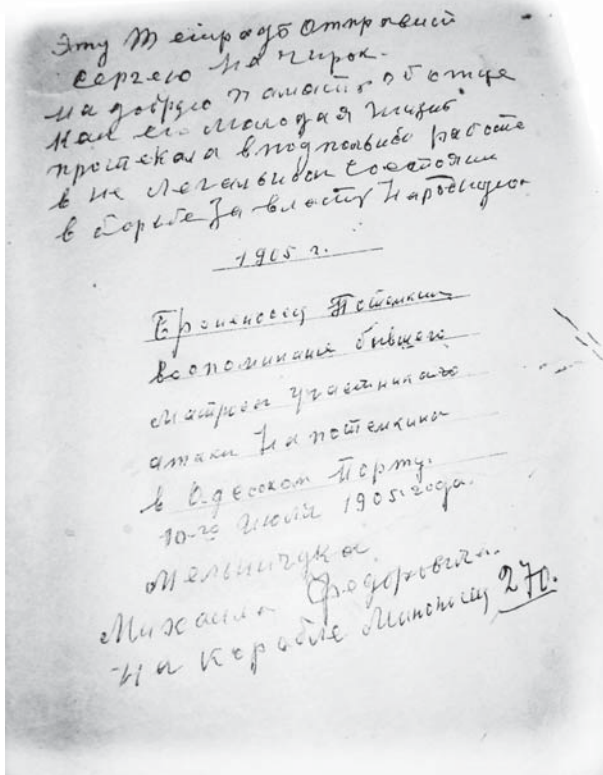 Эту Тетрадь отправит
сергею на
на добрую память об отце
как его молодая жизнь
протекала в подпольной работе
в не легальном состоянии
в борьбе за власть народную
1905 г.
Броненосец Потемкин
воспоминание бывшего
матроса участника
атаки На потемкина
в Одесском Порту.
10-го июля 1905 года.
Мельничука
Михаила Федоровича.
На корабле Миноносец 270.